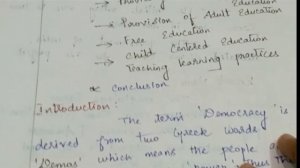 Education
→ Provision of Adult Education
→ Free Education
→ Child Centered Education
Teaching learning practices
* Conclusion
Introduction:
The term 'Democracy' is
derived from two Greek words
'Demos' which means the people
thus the